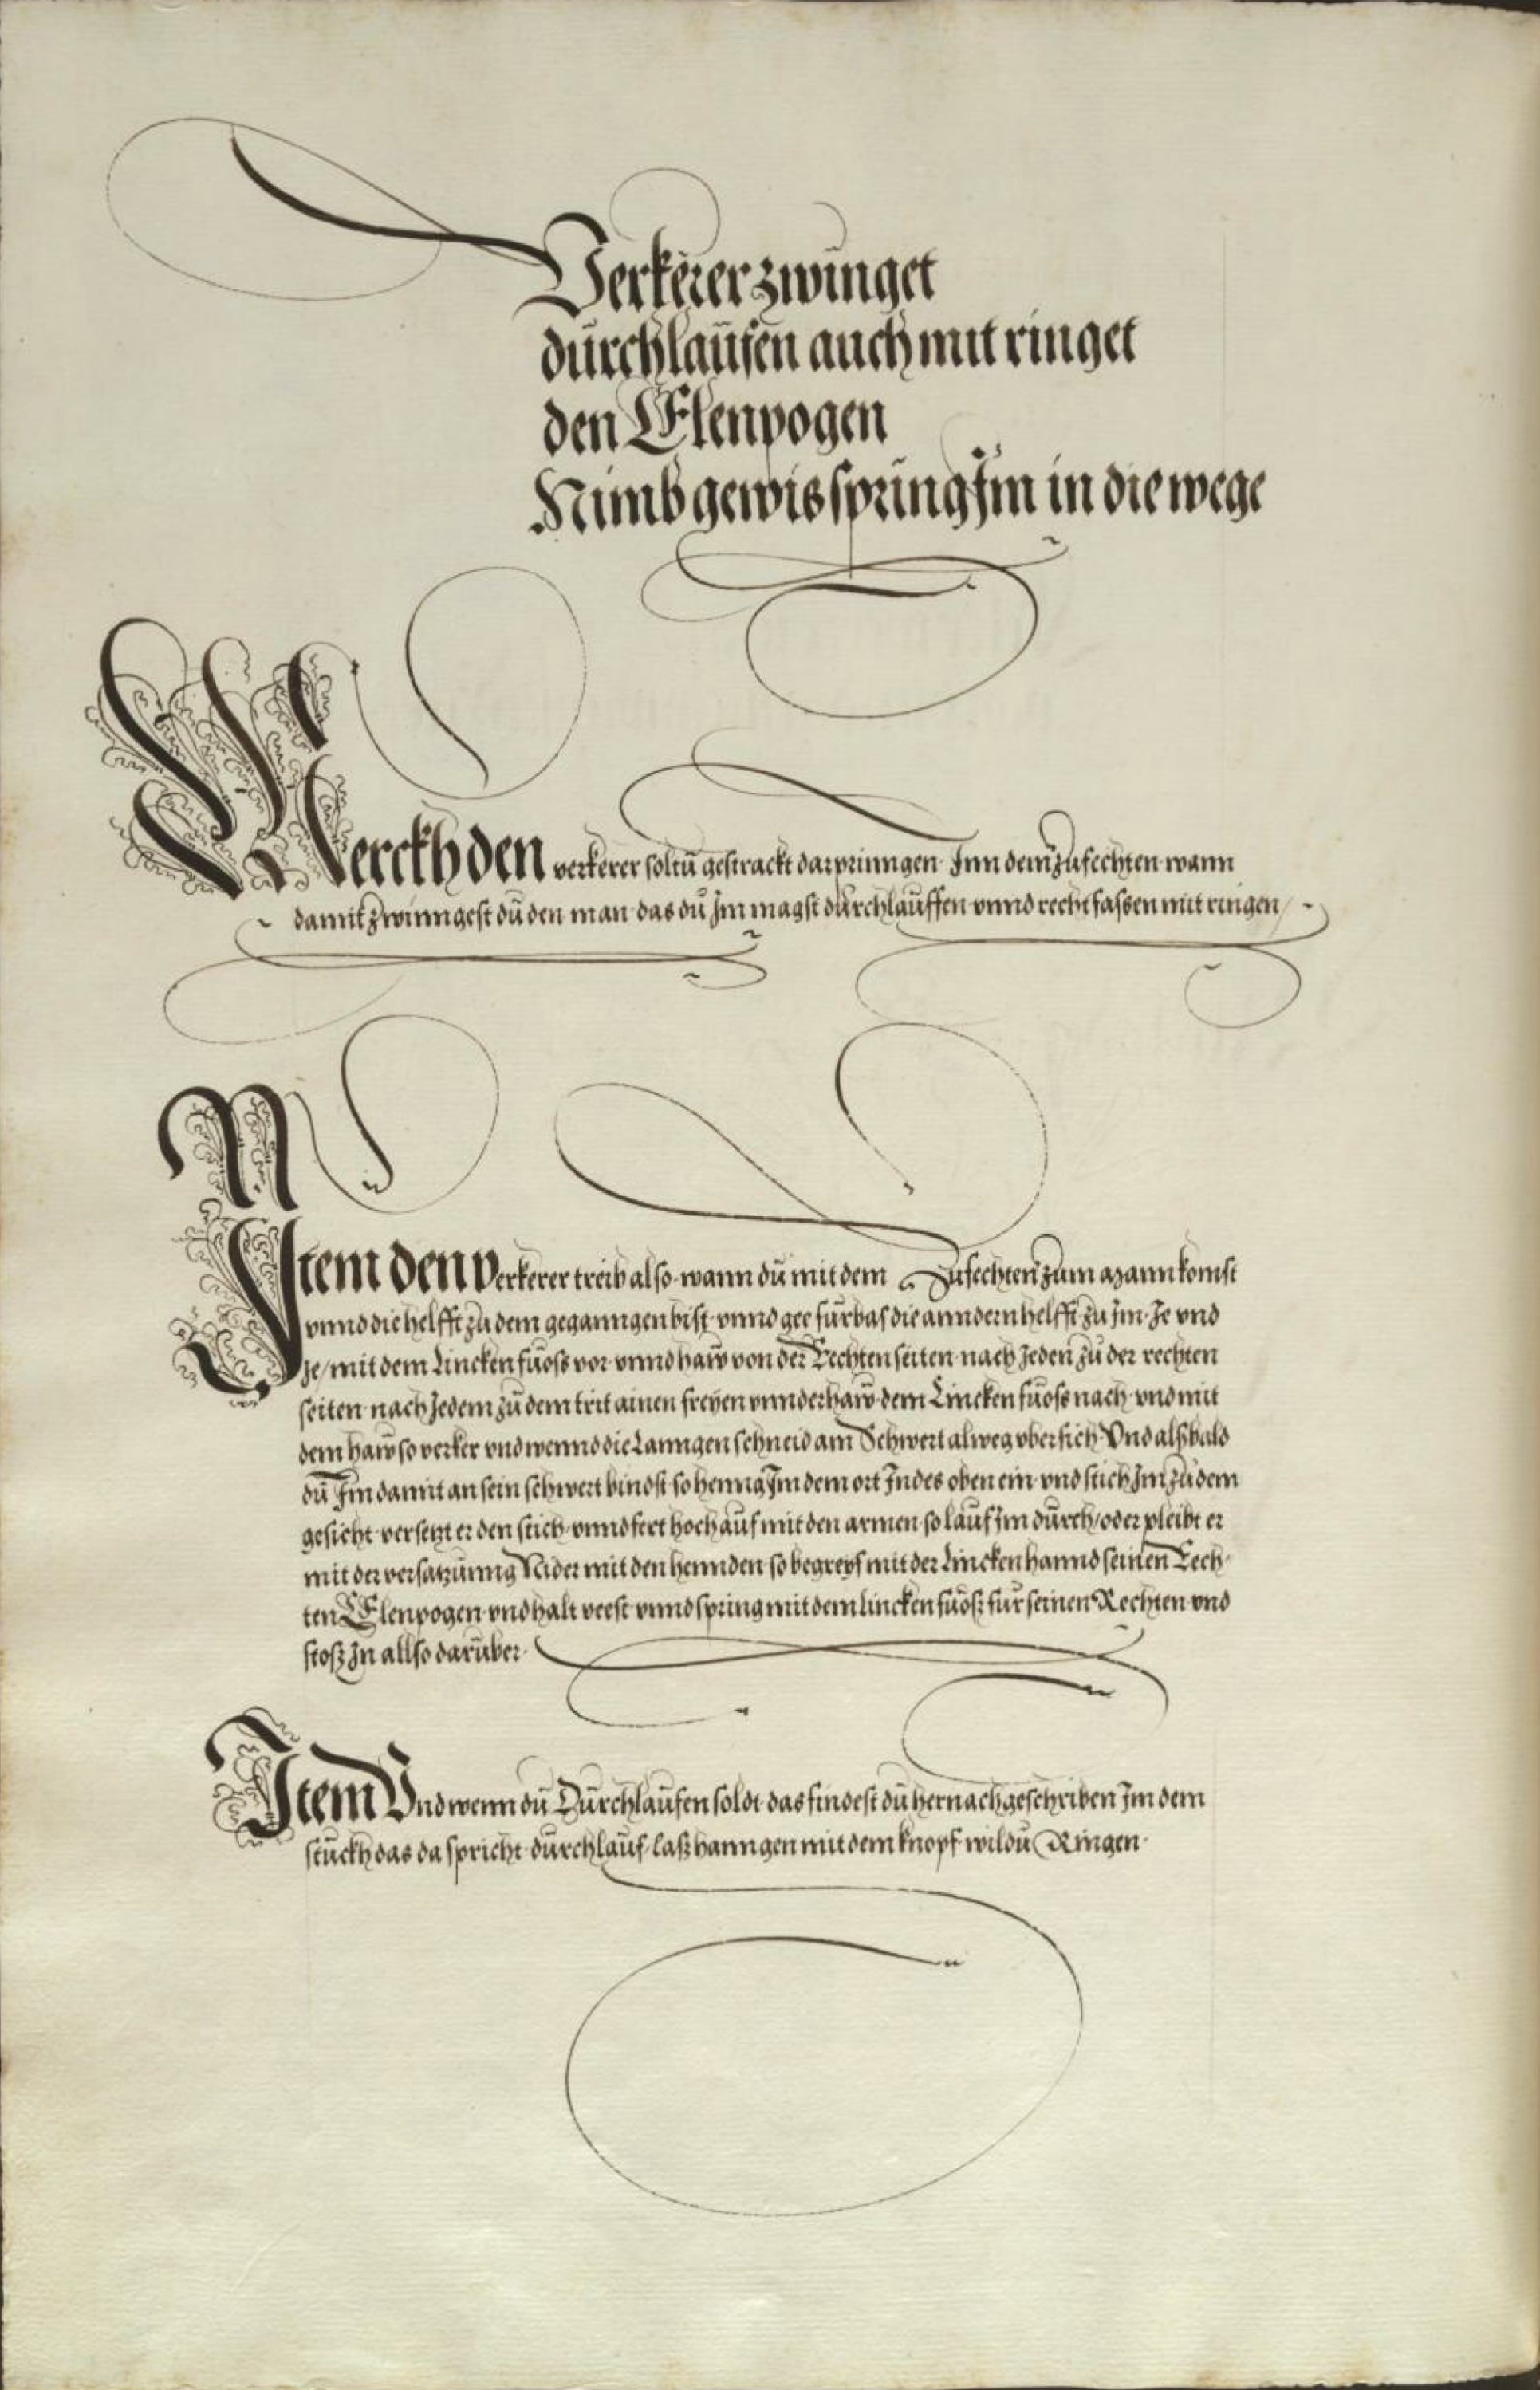 Verkerer zwinget
durchlaufen auch mit ringet
den Elenpogen
Nimb gewis spring Im in die wege
Merckh den verkerer soltu gestrackt darprinngen Inn dem zufechten wann
damit zwinngest du den man das du Im magst durchlauffen vnnd recht fassen mit ringen /
Item den Verkerer treib also wann du mit dem Zufechten zum mann komst
vnnd die helfft zu dem geganngen bist vnnd gee furbas die anndern helfft zu Im Je vnd
Je / mit dem Lincken fuoss vor vnnd haw von der Rechten seiten nach Jeden zu der rechten
seiten nach Jedem zu dem trit ainen freyen vnnderhaw dem Lincken fuoss nach vnd mit
dem haw so verker vnd wennd die Lanngen schneid am Schwert alweg vbersich Vnd alsbald
du Im damit an sein schwert bindst so henng Im dem ort Indes oben ein vnd stich Im zu dem
gesicht versetzt er den stich vnnd fert hoch auf mit den armen so lauf Im durch / oder pleibt er
mit der versatzunng Nider mit den hennden so begreyf mit der Lincken hannd seinen Rech-
ten Elenpogen vnd halt veest vnnd spring mit dem lincken fuosz fur seinen Rechten vnd
stosz In allso daruber
Item Vnd wenn du Durchlaufen soldt das findest du hernach geschriben Im dem
stuckh das da spricht durchlauf lasz hanngen mit dem knopf wildu Ringen